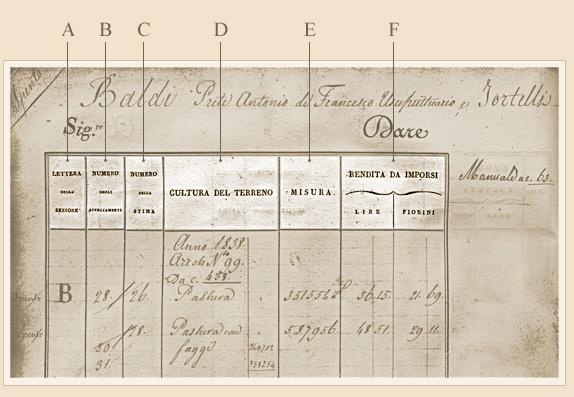 A B C D E F
Spunto
Baldi Prete Antonio di Francesco Usufruttuario, e Tortelli
Sig.re Dare
Manuald ac. 63.
LETTERA DELLA SEZIONE
NUMERO DEGLI APPEZZAMENTI
NUMERO DELLA STIMA
CULTURA DEL TERRENO
MISURA
RENDITA DA IMPORSI
LIRE FIORINI
Anno 1838
Arroto N.º 99.
Da c. 438.
B 28. 26. Pastura 351554 36.15. 21. 69.
28. Pastura con 587956 48.51. 29. 11.
30. faggi
31.